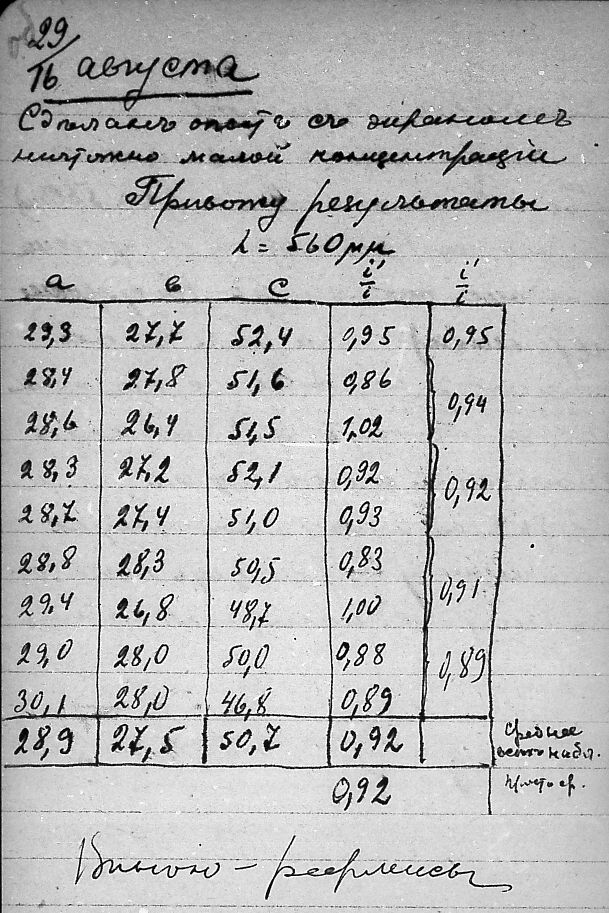 29/16 августа
Сдѣланъ опытъ съ экраномъ
ничтожно малой концентраціи
Привожу результаты
λ = 560 μμ
a в c i'/i i'/i
29,3 27,7 52,4 0,95 0,95
28,4 27,8 51,6 0,86
0,94
28,6 26,4 51,5 1,02
28,3 27,2 52,1 0,92
0,92
28,7 27,4 51,0 0,93
28,8 28,3 50,5 0,83
0,91
29,4 26,8 48,7 1,00
29,0 28,0 50,0 0,88
0,89
30,1 28,0 46,8 0,89
28,9 27,5 50,7 0,92 среднее
набл.
0,92 просто ср.
рефлексы